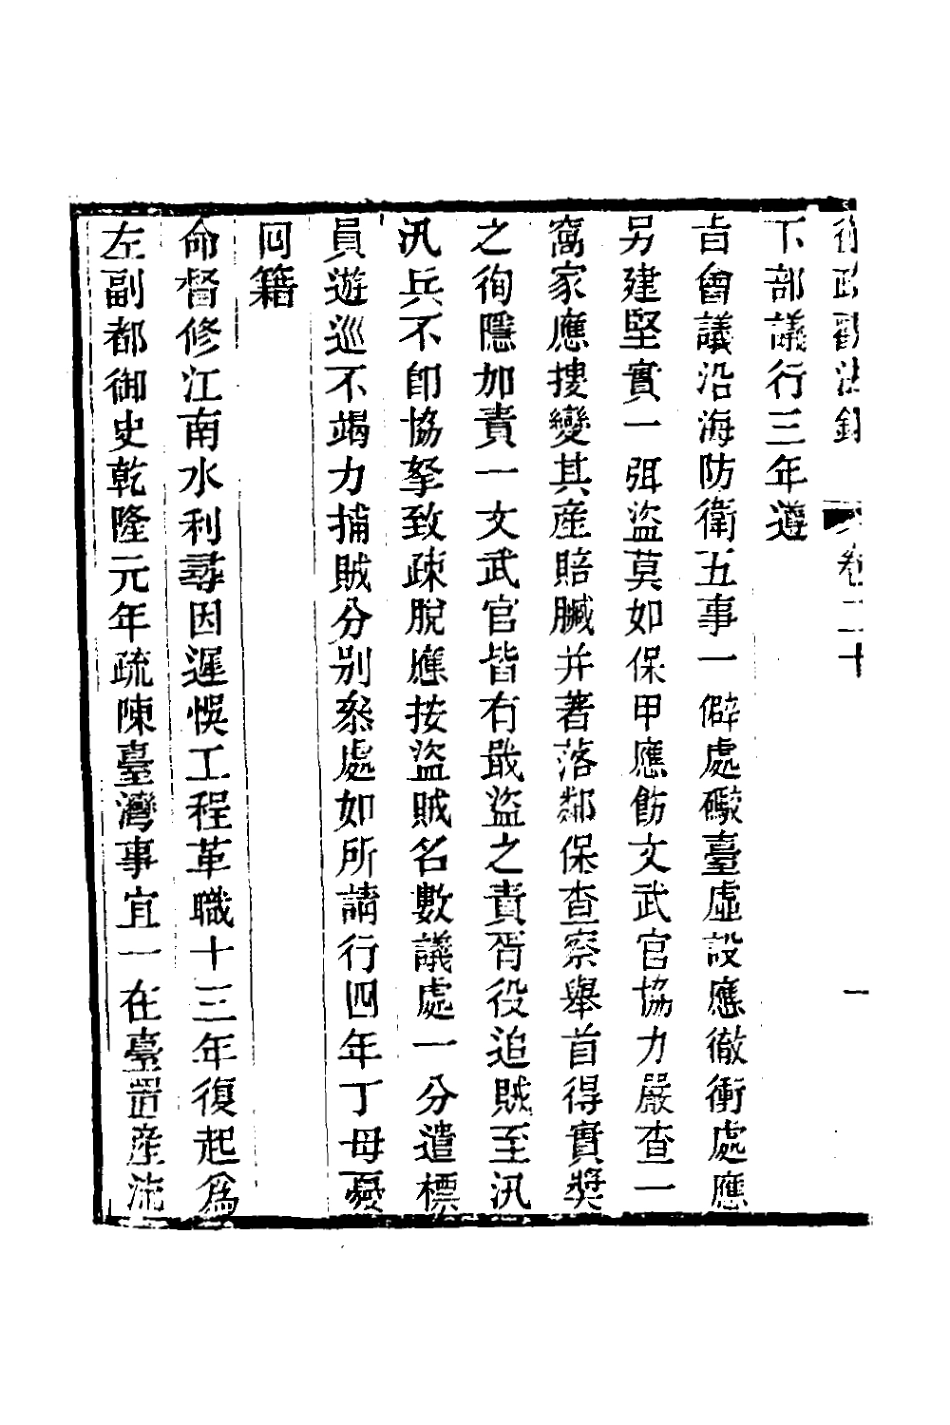 從政觀法錄 卷二十 一
下部議行三年遵
旨會議沿海防衛五事一僻處礮臺虛設應徹衝處應
另建堅實一弭盜莫如保甲應飭文武官協力嚴查一
窩家應摟變其產賠贓并著落鄰保查察舉首得實獎
之徇隱加責一文武官皆有戢盜之責胥役追賊至汛
汛兵不卽協拏致疎脫應按盜賊名數議處一分遣標
員遊巡不竭力捕賊分別叅處如所請行四年丁母憂
囘籍
命督修江南水利尋因遲悞工程革職十三年復起爲
左副都御史乾隆元年疏陳臺灣事宜一在臺置產流